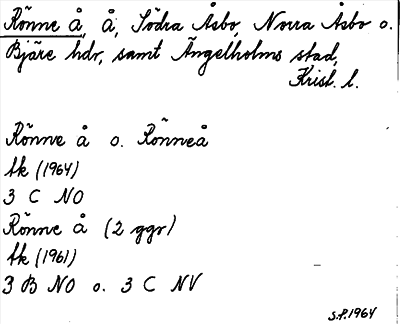 Rönne å, å, Södra Åsbo, Norra Åsbo o.
Bjäre hdr, samt Ängelholms stad,
Krist. l.
Rönne å o. Rönneå
tk (1964)
3 C NO
Rönne å (2 ggr)
tk (1961)
3 B NO o. 3 C NV
S.P. 1964